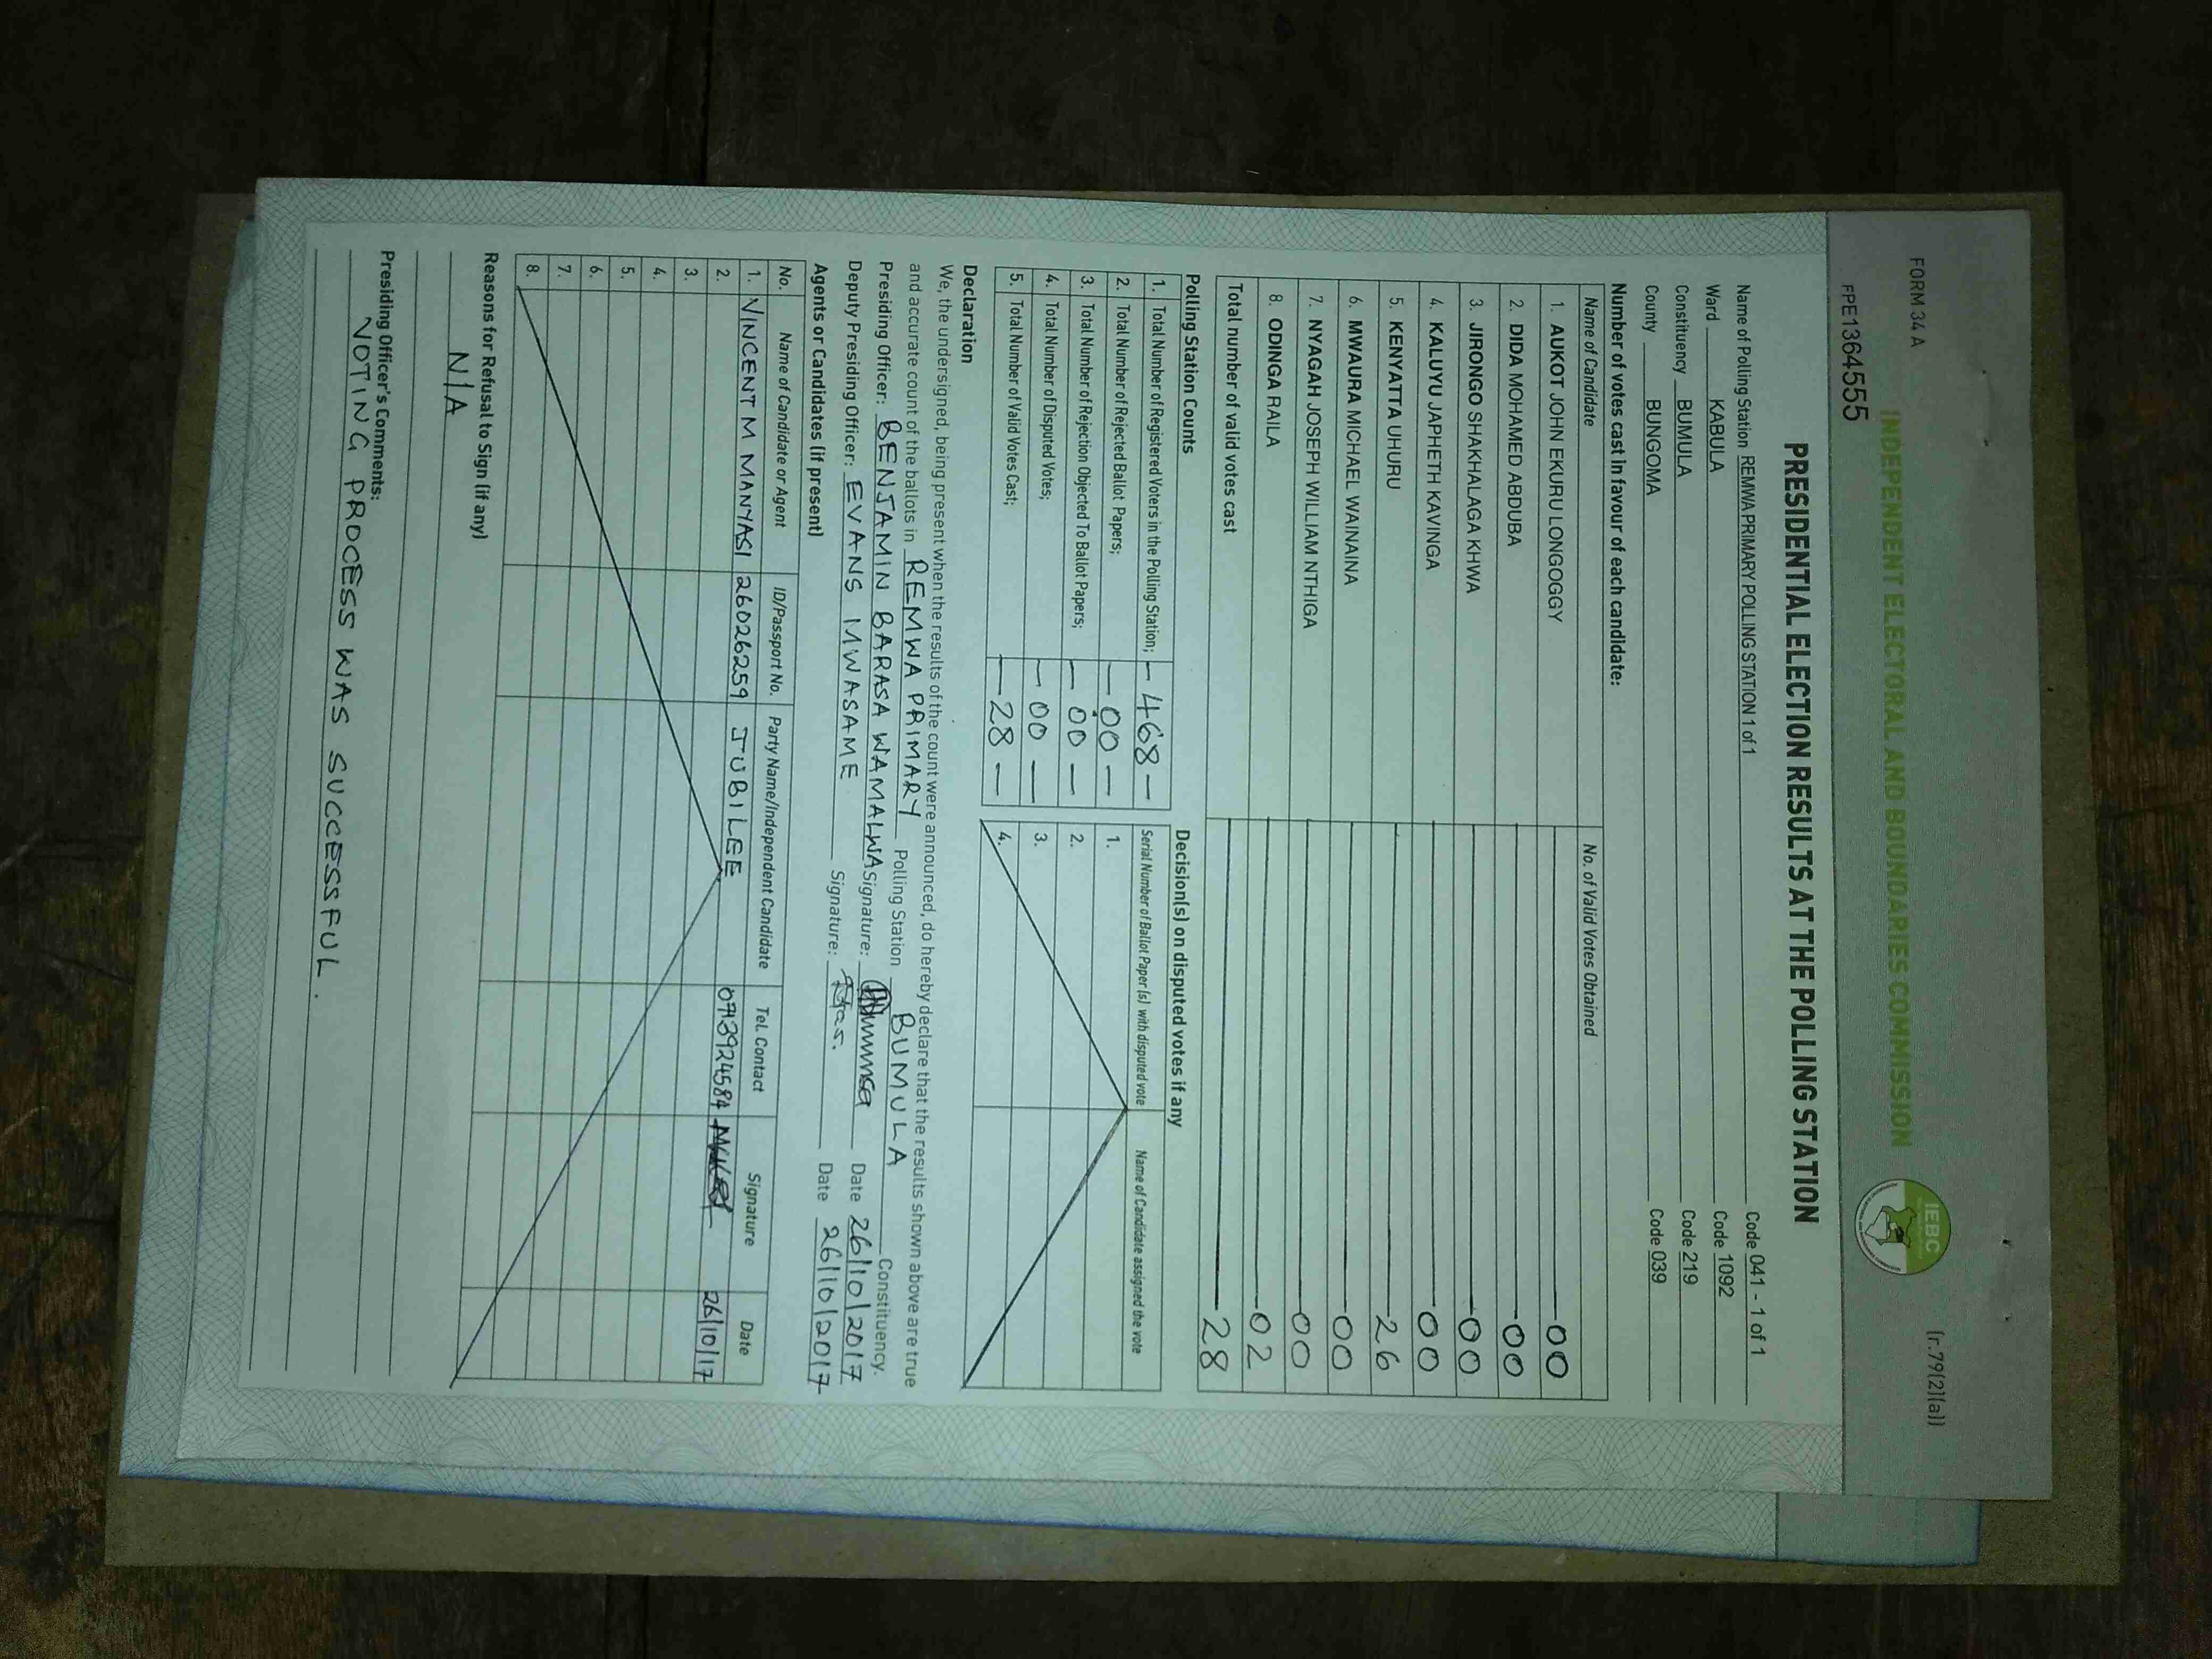 FORM 34 A
(r.79(2)(a))
INDEPENDENT ELECTORAL AND BOUNDARIES COMMISSION
IEBC
FPE1364555
PRESIDENTIAL ELECTION RESULTS AT THE POLLING STATION
Name of Polling Station REMWA PRIMARY POLLING STATION 1 of 1 Code 041 - 1 of 1
Ward KABULA Code 1092
Constituency BUMULA Code 219
County BUNGOMA Code 039
Number of votes cast in favour of each candidate:
Name of Candidate No. of Valid Votes Obtained
1. AUKOT JOHN EKURU LONGOGGY 00
2. DIDA MOHAMED ABDUBA 00
3. JIRONGO SHAKHALAGA KHWA 00
4. KALUYU JAPHETH KAVINGA 00
5. KENYATTA UHURU 26
6. MWAURA MICHAEL WAINAINA 00
7. NYAGAH JOSEPH WILLIAM NTHIGA 00
8. ODINGA RAILA 02
Total number of valid votes cast 28
Polling Station Counts
1. Total Number of Registered Voters in the Polling Station; — 468 —
2. Total Number of Rejected Ballot Papers; — 00 —
3. Total Number of Rejection Objected To Ballot Papers; — 00 —
4. Total Number of Disputed Votes; — 00 —
5. Total Number of Valid Votes Cast; — 28 —
Decision(s) on disputed votes if any
Serial Number of Ballot Paper (s) with disputed vote Name of Candidate assigned the vote
1.
2.
3.
4.
Declaration
We, the undersigned, being present when the results of the count were announced, do hereby declare that the results shown above are true
and accurate count of the ballots in REMWA PRIMARY Polling Station BUMULA Constituency.
Presiding Officer: BENJAMIN BARASA WAMALWA Signature: Date 26/10/2017
Deputy Presiding Officer: EVANS MWASAME Signature: Date 26/10/2017
Agents or Candidates (if present)
No. Name of Candidate or Agent ID/Passport No. Party Name/Independent Candidate Tel. Contact Signature Date
1. VINCENT M MANYASI 26026259 JUBILEE 0713924584 26/10/17
2.
3.
4.
5.
6.
7.
8.
Reasons for Refusal to Sign (if any)
N/A
Presiding Officer's Comments:
VOTING PROCESS WAS SUCCESSFUL.